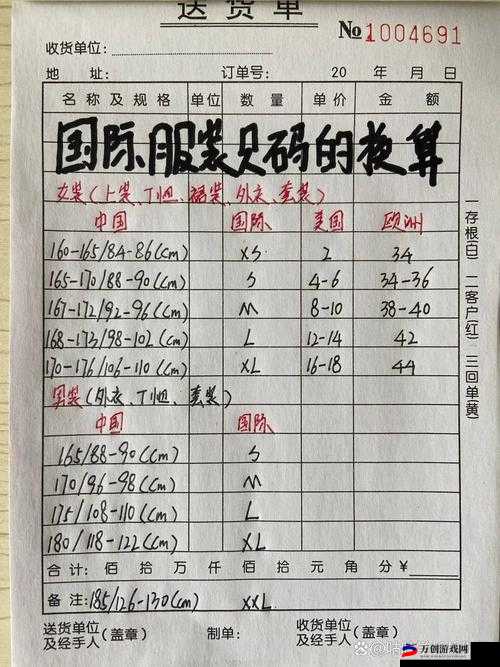 送货单
№1004691
收货单位:
地 址: 订单号: 20 年 月 日
名称及规格 单位 数量 单价 金额
国际服装尺码的换算
女装(上装、T恤、裙装、外衣、套装)
中国 国际 美国 欧洲
160-165/84-86(cm) XS 2 34
165-170/88-90(cm) S 4-6 34-36
167-172/92-96(cm) M 8-10 38-40
168-173/98-102(cm) L 12-14 42
170-176/106-110(cm) XL 16-18 44
男装(外衣、T恤、套装)
中国 国际
165/88-90(cm) S
170/96-98(cm) M
175/108-110(cm) L
180/118-122(cm) XL
合计: 佰 拾 万 仟 佰 拾 元 角 分 ¥
备注: 185/126-130(cm) XXL
送货单位及经手人(盖章) 制单: 收货单位及经手人
一存根(白) 二客户(红) 三回单(黄)
万创游戏网